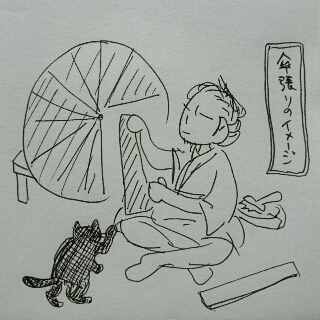 傘張りのイメージ